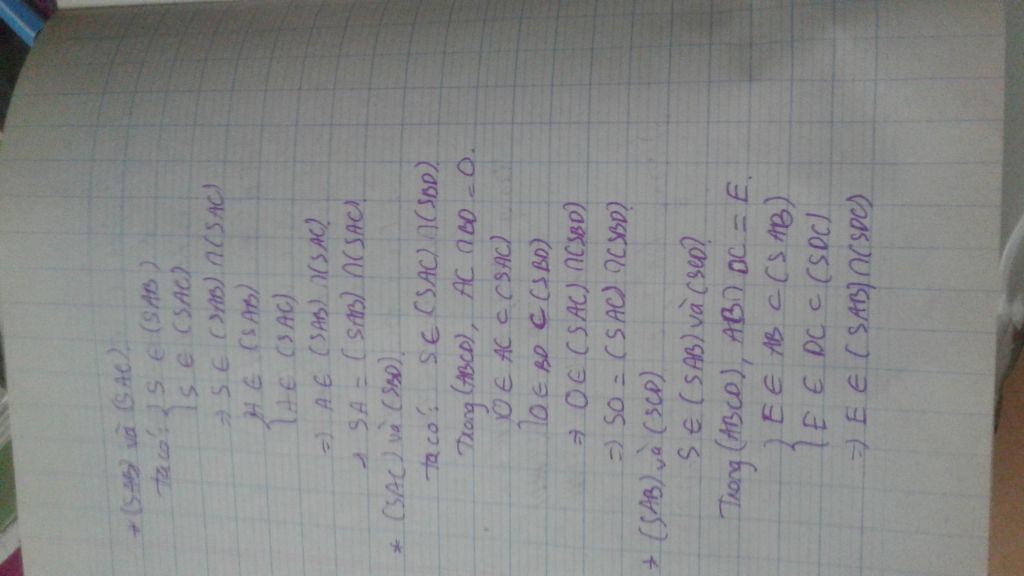 * (SAB) và (SAC).
Ta có: { S ∈ (SAB)
S ∈ (SAC)
⇒ S ∈ (SAB) ∩ (SAC)
{ A ∈ (SAB)
A ∈ (SAC)
⇒ A ∈ (SAB) ∩ (SAC)
→ SA = (SAB) ∩ (SAC)
* (SAC) và (SBD).
Ta có: S ∈ (SAC) ∩ (SBD)
Trong (ABCD), AC ∩ BD = O.
{ O ∈ AC ⊂ (SAC)
O ∈ BD ⊂ (SBD)
⇒ O ∈ (SAC) ∩ (SBD)
⇒ SO = (SAC) ∩ (SBD)
* (SAB) và (SCD)
S ∈ (SAB) và (SCD)
Trong (ABCD), AB ∩ DC = E.
{ E ∈ AB ⊂ (SAB)
E ∈ DC ⊂ (SDC)
⇒ E ∈ (SAB) ∩ (SDC)